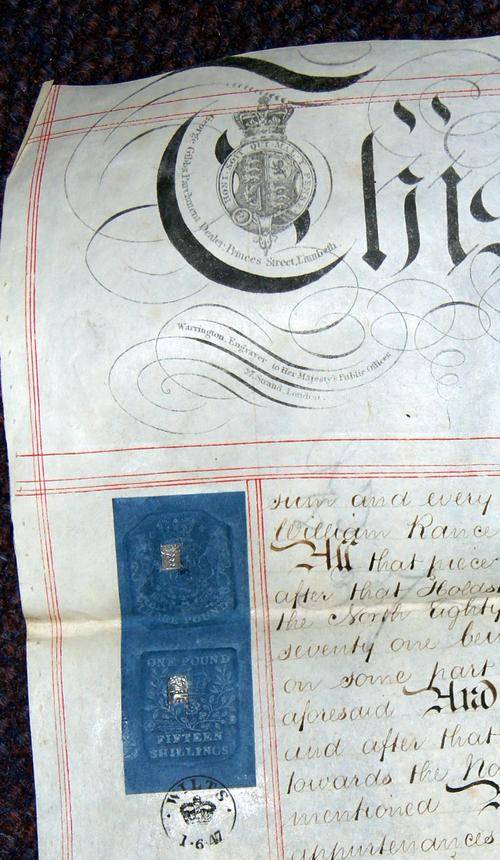 This
HONI SOIT QUI MAL Y PENSE
George Gibbs Parchment Dealer, Princes Street, Lambeth.
Warrington, Engraver to Her Majesty's Public Offices
27, Strand, London.
POUNDS
ONE POUND
FIFTEEN
SHILLINGS
WILTS
1·6·47
sum and every
William Rance
All that piece
after that Holds
the North Eighty
seventy one be
on some part
aforesaid And
and after that
towards the No
mentioned
appurtenances